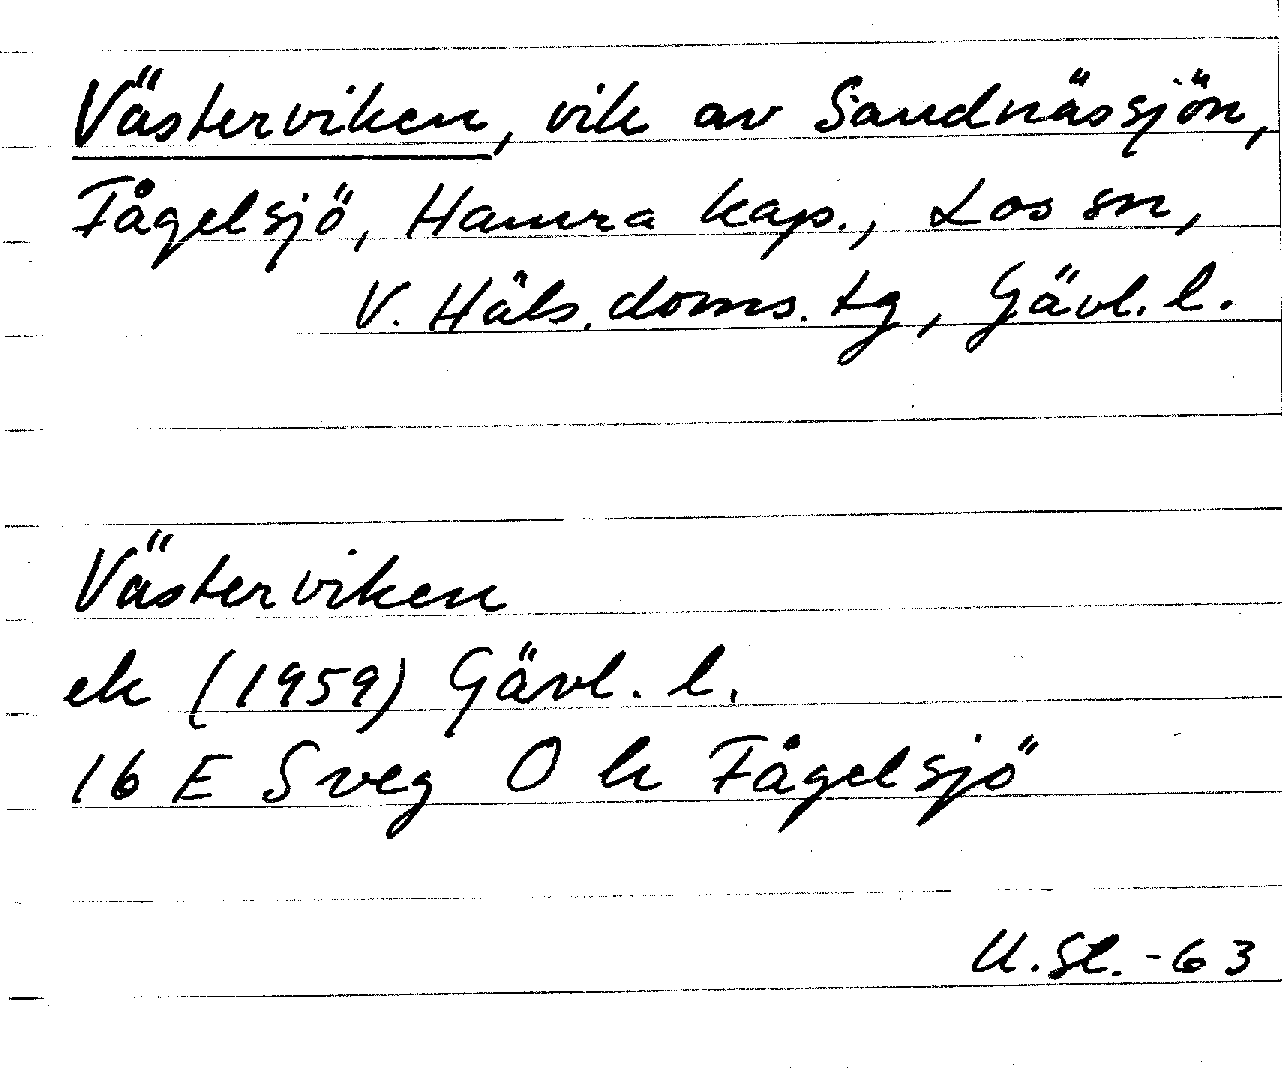 Västerviken, vik av Sandnässjön,
Fågelsjö, Hamra kap., Los sn,
V. Häls. doms. tg, Gävl. l.
Västerviken
ek (1959) Gävl. l.
16 E Sveg O k Fågelsjö
U. Sl. -63